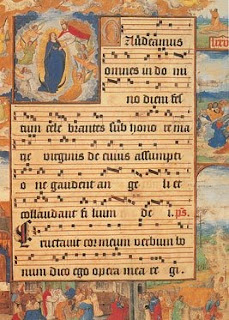 GAudeamus
omnes in do mi
no diem fes
tum cele brantes sub hono re ma
rie virginis de cuius assumpti
o ne gaudent an ge li et
collaudant fi lium de i. ps.
Eructauit cor meum verbum bo
num dico ego opera mea re gi.